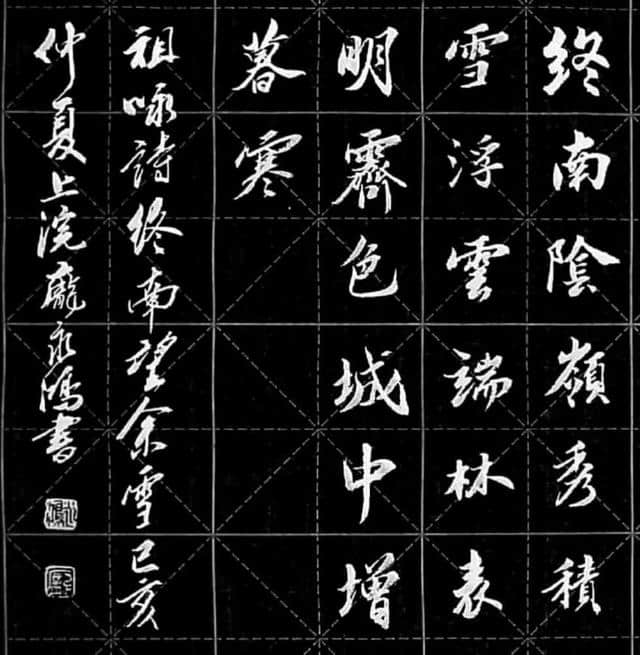 終南陰嶺秀積
雪浮雲端林表
明霽色城中增
暮寒
祖咏詩終南望余雪己亥
仲夏上浣龐永鴻書